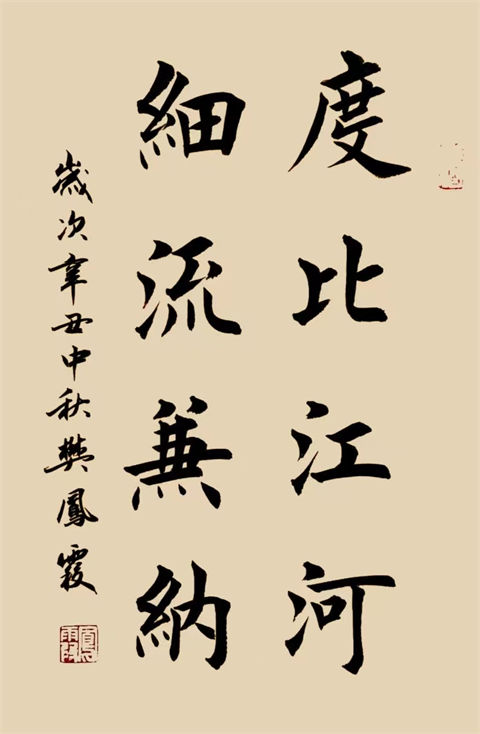 度比江河
細流兼納
歲次辛丑中秋樊鳳霞